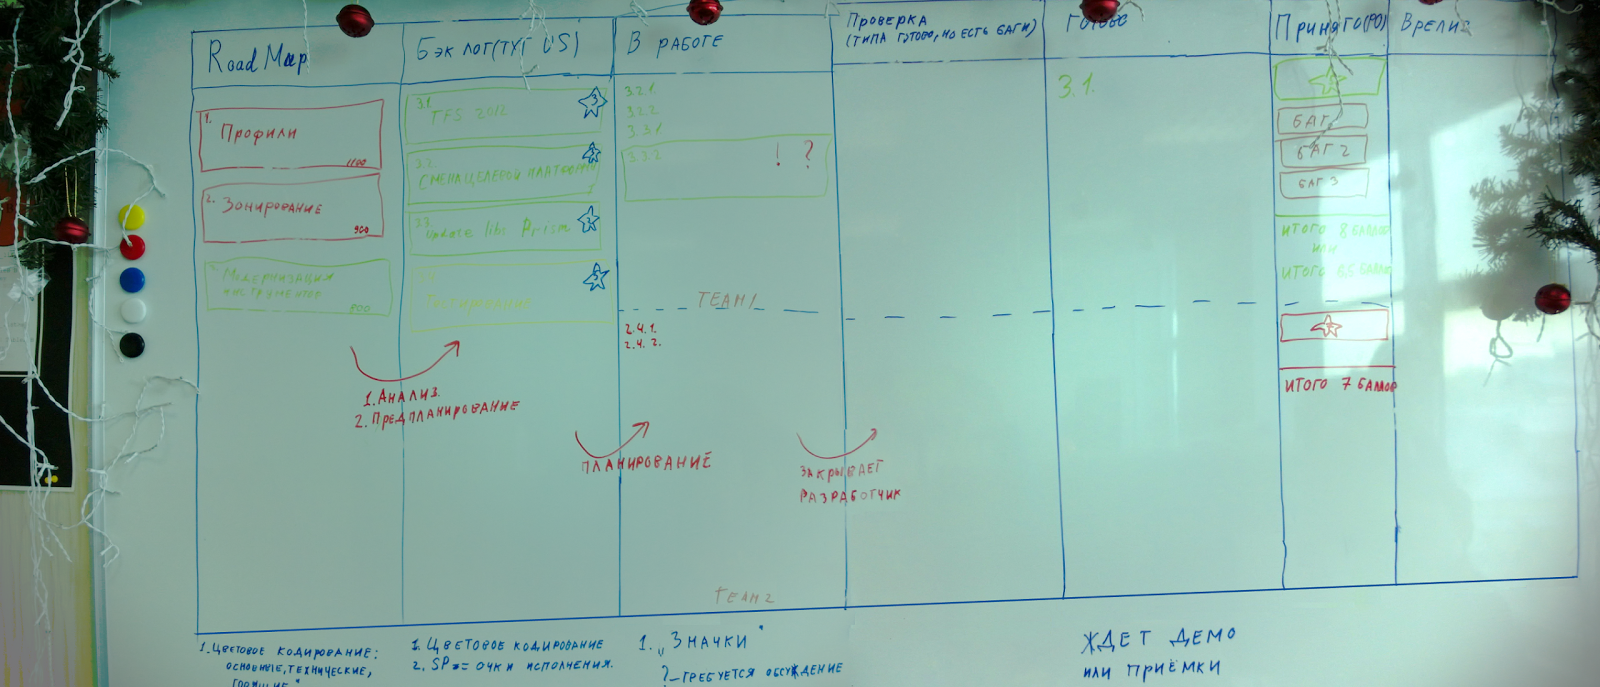 Road Map
Бэклог(ТУТ US)
В РАБОТЕ
ПРОВЕРКА
(ТИПА ГОТОВО, НО ЕСТЬ БАГИ)
ГОТОВО
ПРИНЯТО(PO)
В РЕЛИЗ
1. Профили
1100
2. Зонирование
900
Модернизация
инструментов
800
3.1. TFS 2012
3
3.2. СМЕНА ЦЕЛЕВОЙ ПЛАТФОРМЫ
3.3. update libs Prism
3
Тестирование
5
3.2.1.
3.2.2
3.3.1
3.3.2 ! ?
TEAM1
2.4.1.
2.4.2.
TEAM2
3.1.
БАГ
БАГ 2
БАГ 3
ИТОГО 8 БАЛЛОВ
ИЛИ
ИТОГО 6,5 БАЛЛОВ
ИТОГО 7 БАЛЛОВ
1. АНАЛИЗ.
2. ПРЕДПЛАНИРОВАНИЕ
ПЛАНИРОВАНИЕ
ЗАКРЫВАЕТ
РАЗРАБОТЧИК
1. ЦВЕТОВОЕ КОДИРОВАНИЕ:
ОСНОВНЫЕ, ТЕХНИЧЕСКИЕ,
1. ЦВЕТОВОЕ КОДИРОВАНИЕ
2. SP == ОЧКИ ИСПОЛНЕНИЯ.
1. „ЗНАЧКИ"
? – ТРЕБУЕТСЯ ОБСУЖДЕНИЕ
ЖДЕТ ДЕМО
ИЛИ ПРИЁМКИ